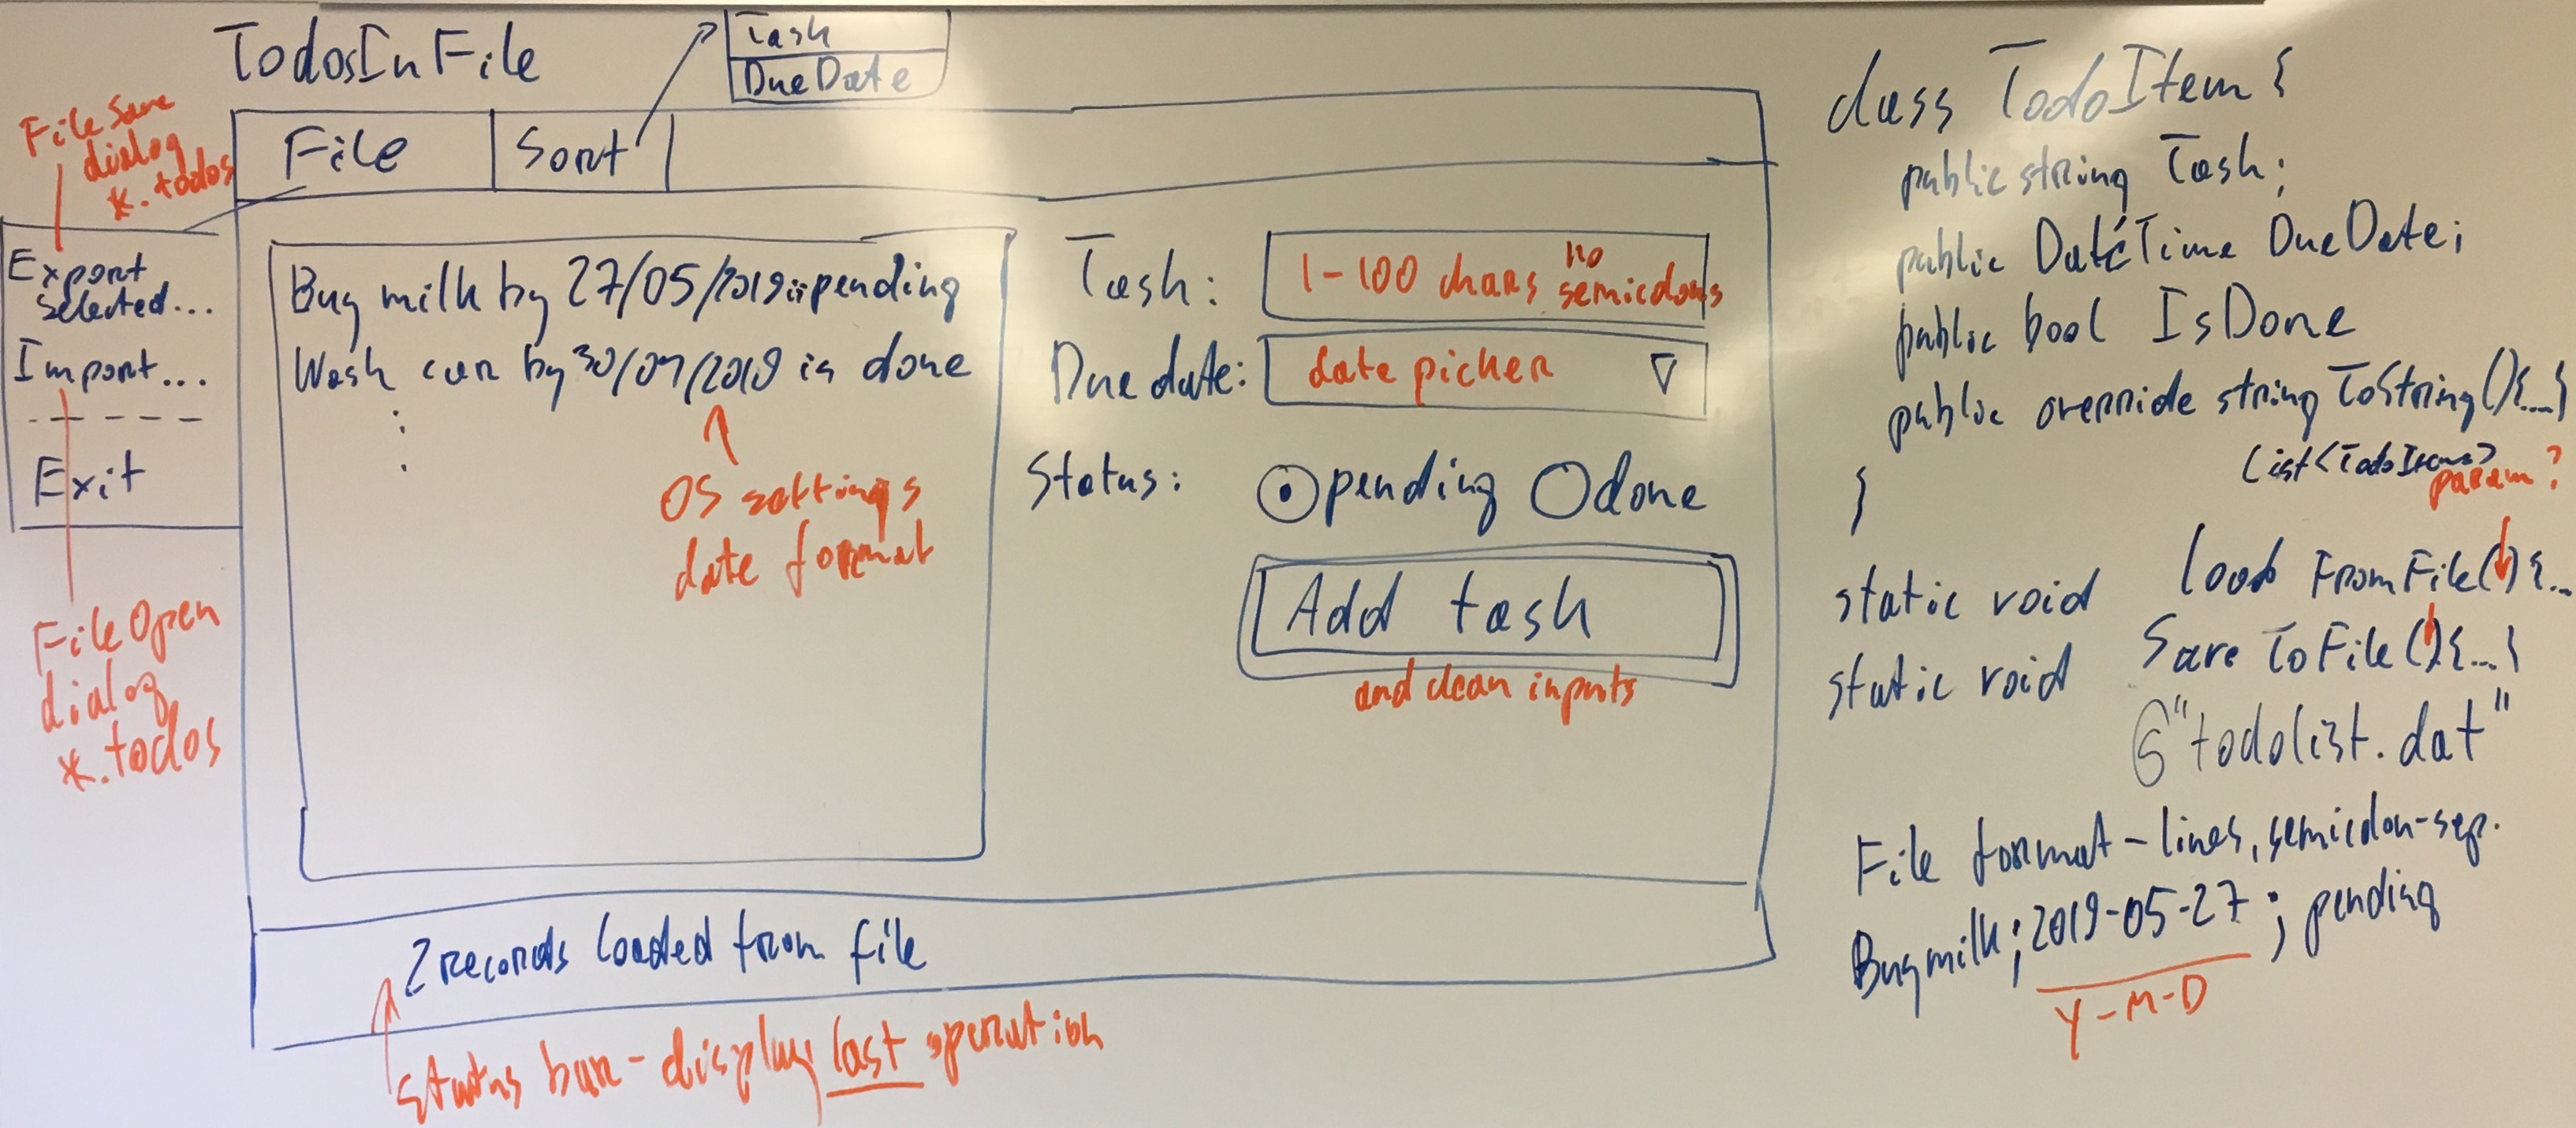 TodosInFile
Task
DueDate
File Save
dialog
*.todos
File
Sort
Export
selected...
Import...
Exit
File Open
dialog
*.todos
Buy milk by 27/05/2019 is pending
Wash car by 30/04/2019 is done
OS settings
date format
Task:
1-100 chars no semicolons
Due date:
date picker
Status:
pending
done
Add task
and clean inputs
2 records loaded from file
status bar - display last operation
class TodoItem {
public string Task;
public DateTime DueDate;
public bool IsDone
public override string ToString(){...}
}
List<TodoItem>
param?
static void Load FromFile(){...
static void Save ToFile(){...}
@"todolist.dat"
File format - lines, semicolon-sep.
Buy milk; 2019-05-27; pending
Y-M-D